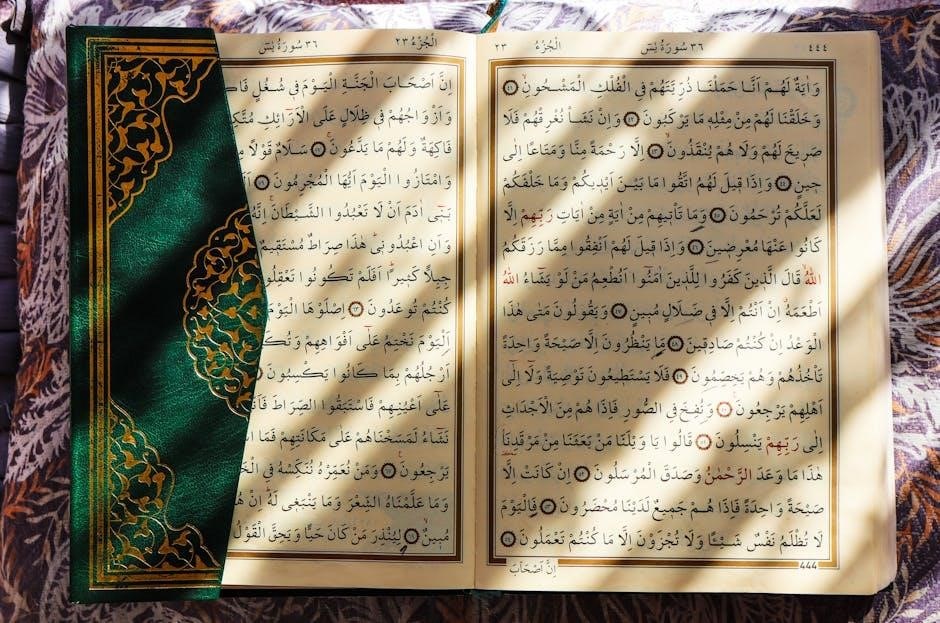 ٤٤٤ ٣٦ سُورَةُ يٰسٓ اَلْجُزْءُ ٢٣
وَاٰيَةٌ لَهُمْ اَنَّا حَمَلْنَا ذُرِّيَّتَهُمْ فِى الْفُلْكِ الْمَشْحُونِۙ ٤١
وَخَلَقْنَا لَهُمْ مِنْ مِثْلِهٖ مَا يَرْكَبُونَ ٤٢ وَاِنْ نَشَاْ نُغْرِقْهُمْ فَلَا
صَرٖيخَ لَهُمْ وَلَا هُمْ يُنْقَذُونَۙ ٤٣ اِلَّا رَحْمَةً مِنَّا وَمَتَاعًا اِلٰى
حٖينٍ ٤٤ وَاِذَا قٖيلَ لَهُمُ اتَّقُوا مَا بَيْنَ اَيْدٖيكُمْ وَمَا خَلْفَكُمْ
لَعَلَّكُمْ تُرْحَمُونَ ٤٥ وَمَا تَاْتٖيهِمْ مِنْ اٰيَةٍ مِنْ اٰيَاتِ رَبِّهِمْ اِلَّا
كَانُوا عَنْهَا مُعْرِضٖينَ ٤٦ وَاِذَا قٖيلَ لَهُمْ اَنْفِقُوا مِمَّا رَزَقَكُمُ
اللّٰهُ قَالَ الَّذٖينَ كَفَرُوا لِلَّذٖينَ اٰمَنُٓوا اَنُطْعِمُ مَنْ لَوْ يَشَٓاءُ اللّٰهُ
اَطْعَمَهُ اِنْ اَنْتُمْ اِلَّا فٖى ضَلَالٍ مُبٖينٍ ٤٧ وَيَقُولُونَ مَتٰى هٰذَا
الْوَعْدُ اِنْ كُنْتُمْ صَادِقٖينَ ٤٨ مَا يَنْظُرُونَ اِلَّا صَيْحَةً وَاحِدَةً
تَاْخُذُهُمْ وَهُمْ يَخِصِّمُونَ ٤٩ فَلَا يَسْتَطٖيعُونَ تَوْصِيَةً وَلَٓا اِلٰٓى
اَهْلِهِمْ يَرْجِعُونَ ٥٠ وَنُفِخَ فِى الصُّورِ فَاِذَا هُمْ مِنَ الْاَجْدَاثِ
اِلٰى رَبِّهِمْ يَنْسِلُونَ ٥١ قَالُوا يَا وَيْلَنَا مَنْ بَعَثَنَا مِنْ مَرْقَدِنَا
هٰذَا مَا وَعَدَ الرَّحْمٰنُ وَصَدَقَ الْمُرْسَلُونَ ٥٢ اِنْ كَانَتْ اِلَّا
صَيْحَةً وَاحِدَةً فَاِذَا هُمْ جَمٖيعٌ لَدَيْنَا مُحْضَرُونَ ٥٣ فَالْيَوْمَ
لَا تُظْلَمُ نَفْسٌ شَيْـًٔا وَلَا تُجْزَوْنَ اِلَّا مَا كُنْتُمْ تَعْمَلُونَ ٥٤
444
اِنَّ اَصْحَابَ
اَلْجُزْءُ ٢٣ ٣٦ سُورَةُ يٰسٓ
اِنَّ اَصْحَابَ الْجَنَّةِ الْيَوْمَ فٖى شُغُلٍ
وَاَزْوَاجُهُمْ فٖى ظِلَالٍ عَلَى الْاَرَٓائِكِ
فَاكِهَةٌ وَلَهُمْ مَا يَدَّعُونَۚ ٥٧ سَلَامٌ قَوْلًا
وَامْتَازُوا الْيَوْمَ اَيُّهَا الْمُجْرِمُونَ ٥٩
يَا بَنٖٓى اٰدَمَ اَنْ لَا تَعْبُدُوا الشَّيْطَانَ اِنَّهُ
وَاَنِ اعْبُدُونٖى هٰذَا صِرَاطٌ مُسْتَقٖيمٌ
جِبِلًّا كَثٖيرًا اَفَلَمْ تَكُونُوا تَعْقِلُو
كُنْتُمْ تُوعَدُونَ ٦٣ اِصْلَوْهَا الْيَوْمَ
اَلْيَوْمَ نَخْتِمُ عَلٰٓى اَفْوَاهِهِمْ
اَرْجُلُهُمْ بِمَا كَانُوا يَكْسِبُونَ
عَلٰٓى اَعْيُنِهِمْ فَاسْتَبَقُوا الصِّرَاطَ
نَشَٓاءُ لَمَسَخْنَاهُمْ عَلٰى مَكَانَتِهِمْ فَمَا
يَرْجِعُونَ ٦٧ وَمَنْ نُعَمِّرْهُ نُنَكِّسْهُ فِى
وَمَا عَلَّمْنَاهُ الشِّعْرَ وَمَا يَنْبَغٖى لَهُ اِنْ
مُبٖينٌۙ ٦٩ لِيُنْذِرَ مَنْ كَانَ حَيًّا وَيَحِقَّ الْقَوْلُ